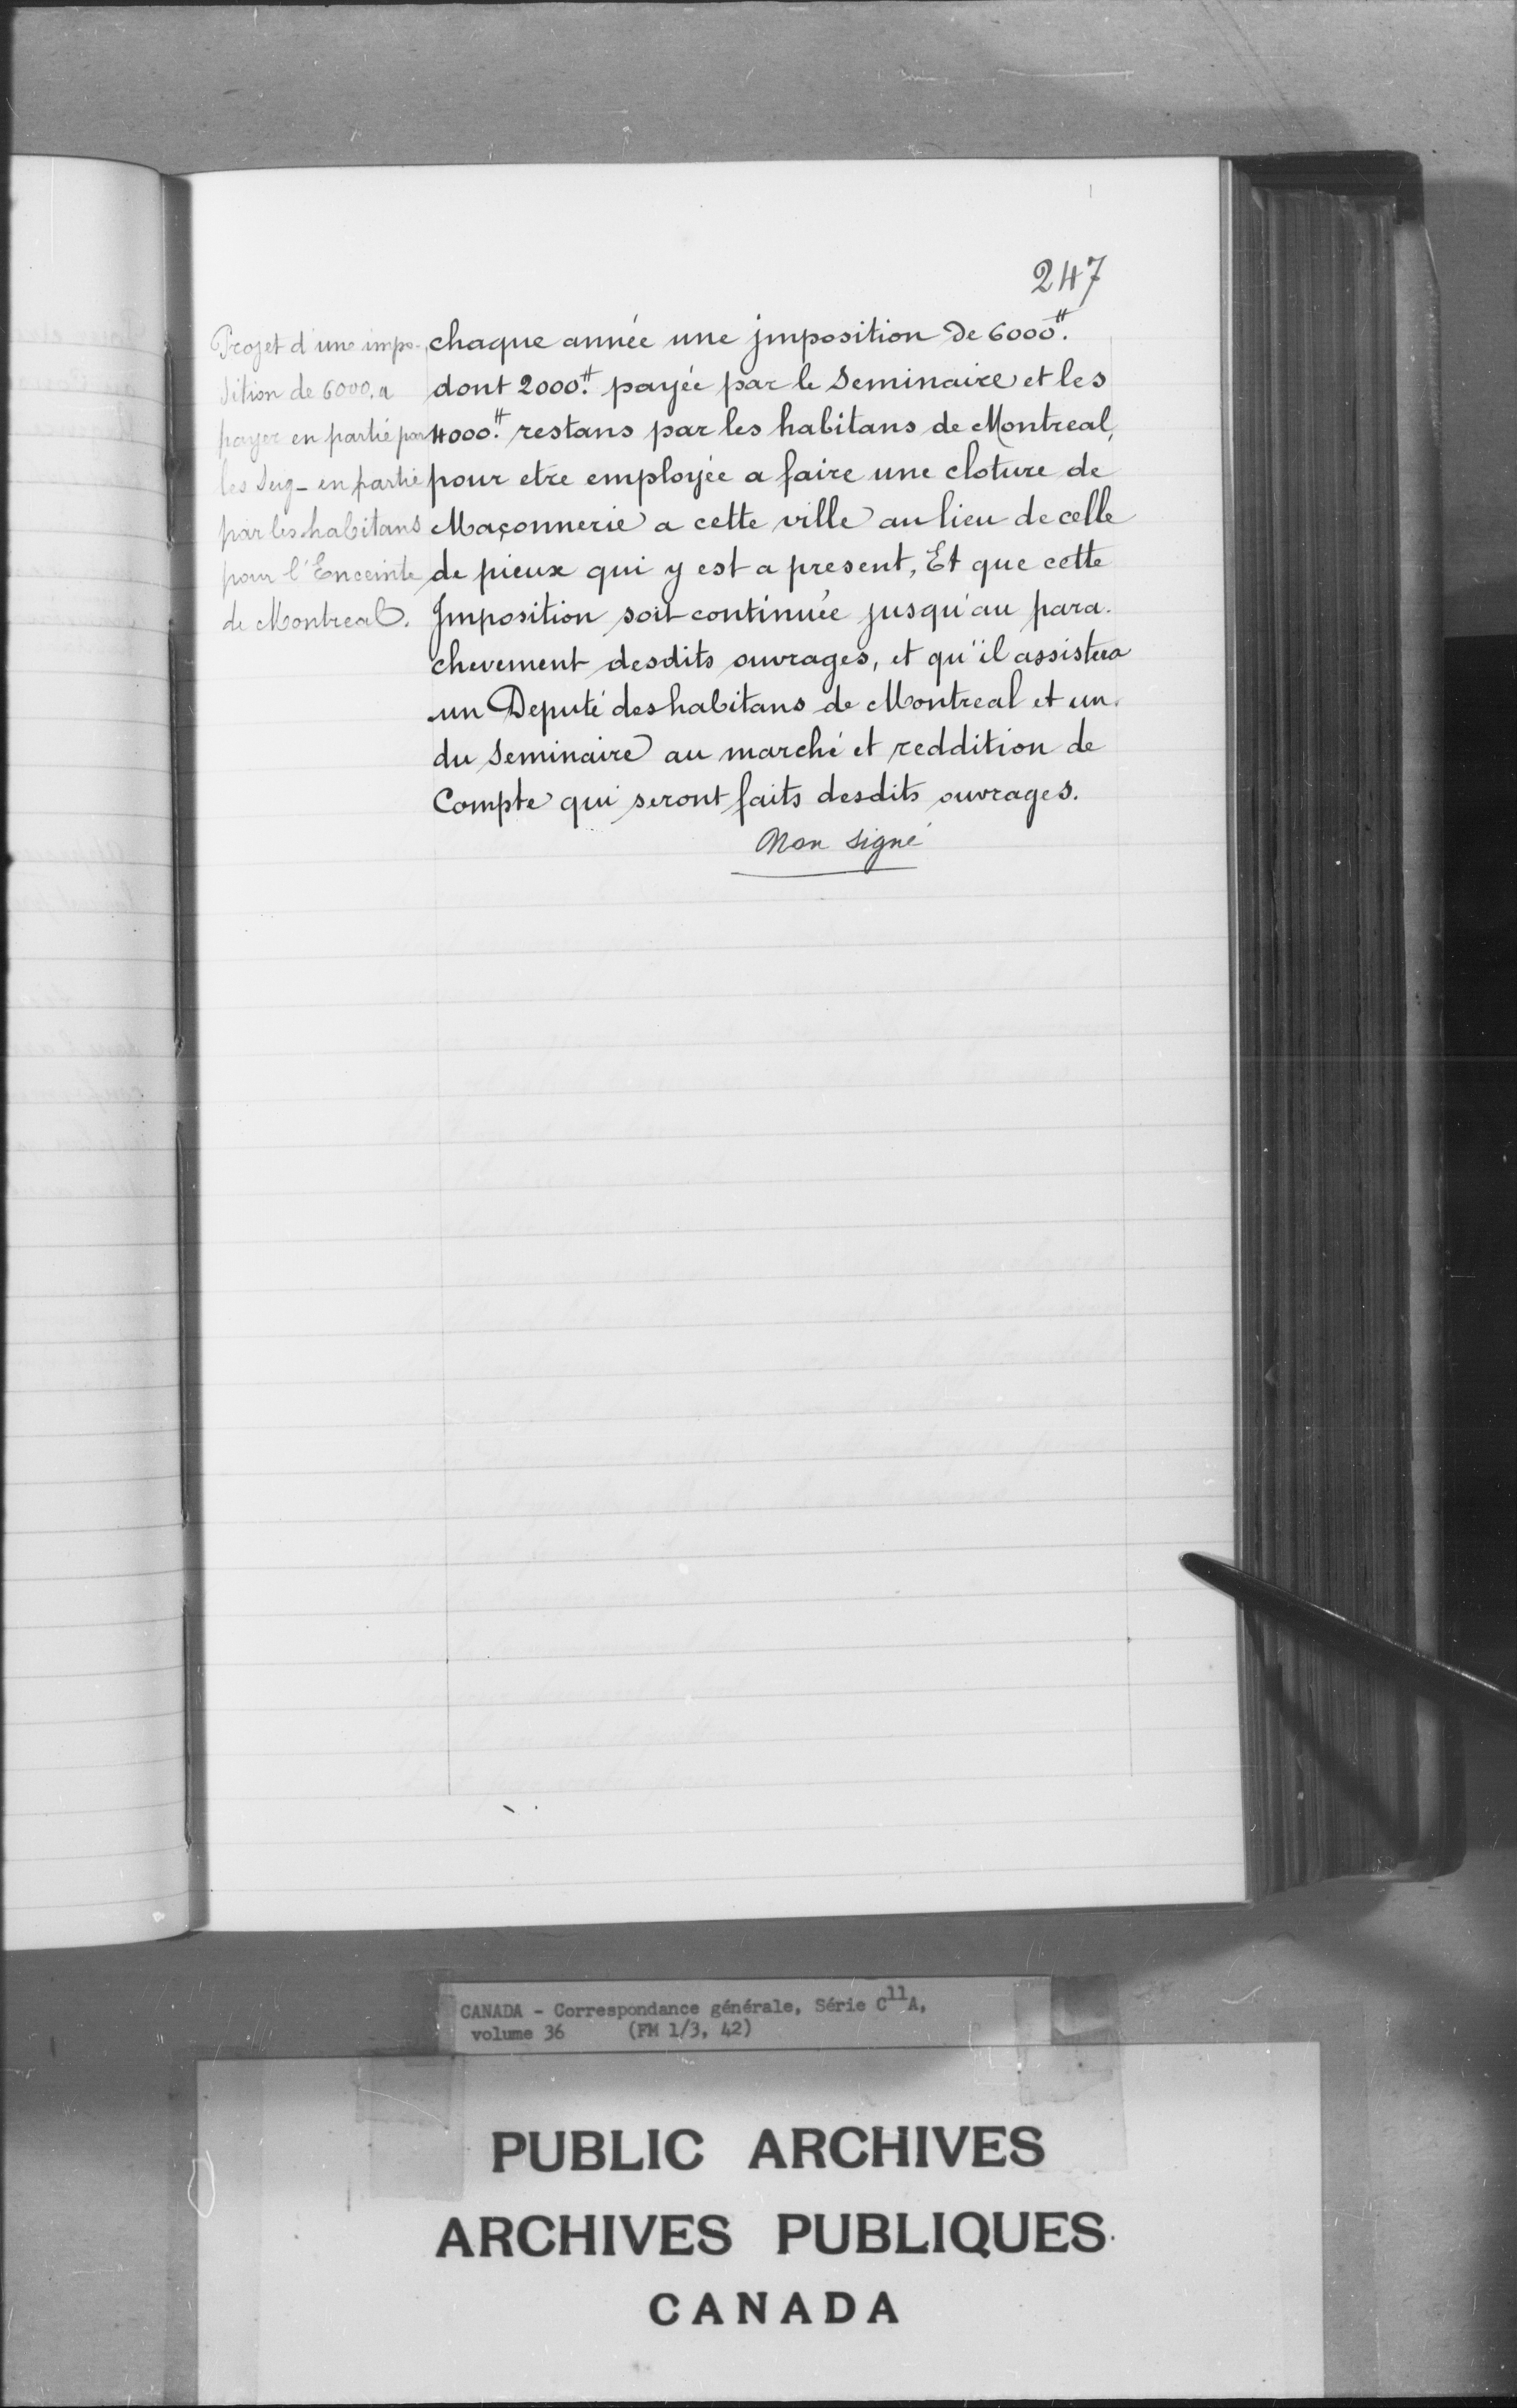 247
Projet d'une impo-
sition de 6000. a
payer en partie par
les Seig- en partie
par les habitans
pour l'Enceinte
de Montreal.
chaque année une jmposition de 6000ᵗᵗ.
dont 2000ᵗᵗ. payée par le Seminaire et les
4000ᵗᵗ. restans par les habitans de Montreal,
pour etre employée a faire une cloture de
Maçonnerie a cette ville au lieu de celle
de pieux qui y est a present, Et que cette
Jmposition soit continuée jusqu'au para-
chevement desdits ouvrages, et qu'il assistera
un Deputé des habitans de Montreal et un
du Seminaire au marché et reddition de
Compte qui seront faits desdits ouvrages.
Non signé
CANADA - Correspondance générale, Série C¹¹A,
volume 36 (FM 1/3, 42)
PUBLIC ARCHIVES
ARCHIVES PUBLIQUES
CANADA